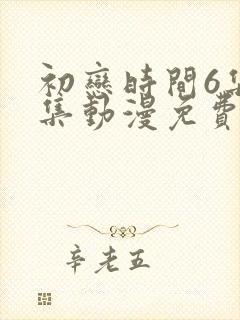 初戀時間6集
集動漫免費
辛老五